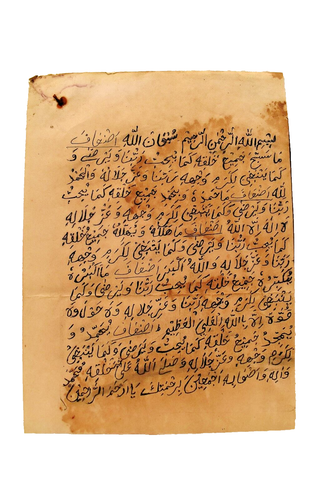 بسم الله الرحمن الرحيم سبحان الله اضعاف
ما سبح جميع خلقه كما يحب ربنا ويرضى و
كما ينبغى لكرم وجهه ربنا وعز جلاله والحمد
لله اضعاف ما حمده ويحمده جميع خلقه كما يحب
ربنا ويرضى وكما ينبغى لكرم وجهه وعز جلاله
لا اله الا الله اضعاف ما هلله ويهلله جميع خلقه
كما يحب ربنا ويرضى وكما ينبغى لكرم وجهه
ربنا وعز جلاله والله اكبر اضعاف ما اكبره
جميع خلقه كما يحب ربنا ويرضى وكما
ينبغى لكرم وجهه ربنا وعز جلاله ولا حول ولا
قوة الا بالله العلي العظيم اضعاف
جميع خلقه كما يحب ويرضى وكما ينبغى
لكرم وجهه وعز جلاله وصلى الله على خلقه محمد
وآله واصحابه اجمعين برحمتك يا ارحم الراحمين